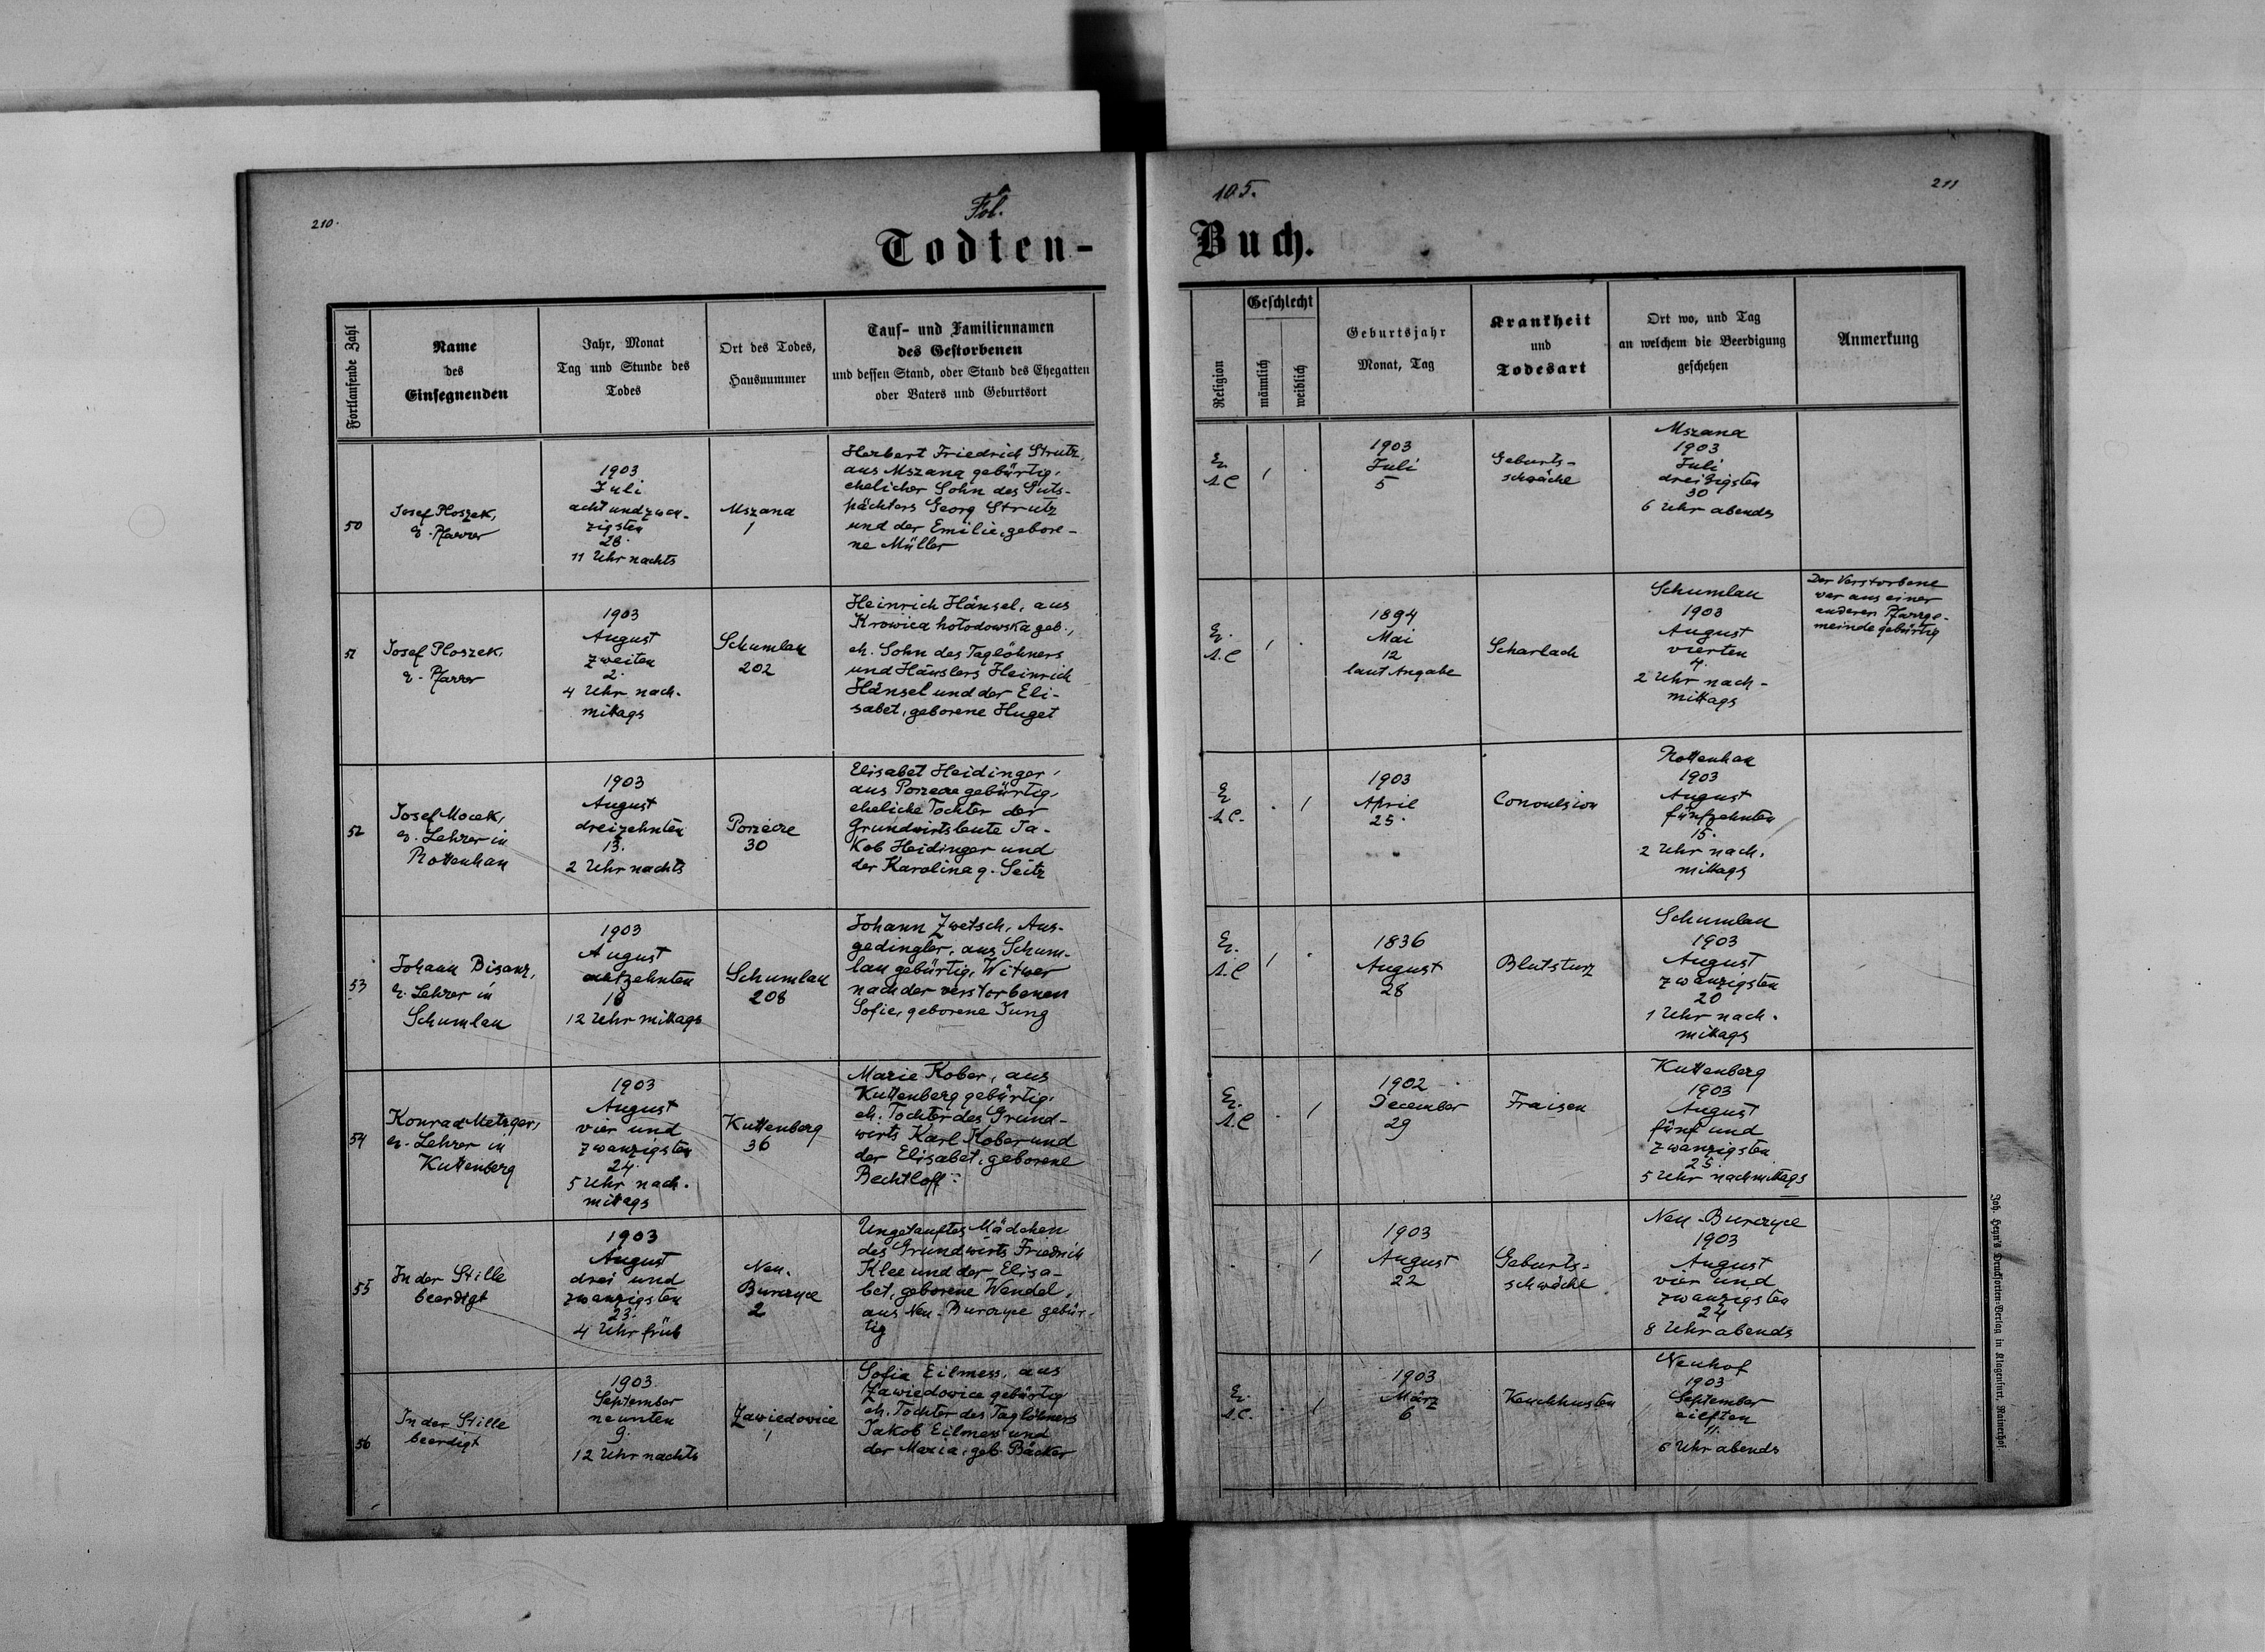 210.
Fol.
105.
211
Todten-
Buch.
Fortlaufende Zahl
Name
des
Einsegnenden
Jahr, Monat
Tag und Stunde des
Todes
Ort des Todes,
Hausnummer
Tauf- und Familiennamen
des Gestorbenen
und dessen Stand, oder Stand des Ehegatten
oder Vaters und Geburtsort
Religion
Geschlecht
männlich
weiblich
Geburtsjahr
Monat, Tag
Krankheit
und
Todesart
Ort wo, und Tag
an welchem die Beerdigung
geschehen
Anmerkung
50
Josef Ploszek,
ev. Pfarrer
1903
Juli
acht und zwan-
zigsten
28.
11 Uhr nachts
Mszana
1
Herbert Friedrich Strutz,
aus Mszana gebürtig,
ehelicher Sohn des Guts-
pächters Georg Strutz
und der Emilie, gebore-
ne Müller
Ev.
A.C
1
.
1903
Juli
5
Geburts-
schwäche
Mszana
1903
Juli
dreißigsten
30
6 Uhr abends
51
Josef Ploszek,
ev. Pfarrer
1903
August
zweiten
2.
4 Uhr nach-
mittags
Schumlau
202
Heinrich Hänsel, aus
Krowica hołodowska geb.,
eh. Sohn des Taglöhners
und Häuslers Heinrich
Hänsel und der Eli-
sabet, geborene Huget
Ev.
A.C
1
.
1894
Mai
12
laut Angabe
Scharlach
Schumlau
1903
August
vierten
4.
2 Uhr nach-
mittags
Der Verstorbene
war aus einer
anderen Pfarrge-
meinde gebürtig
52
Josef Mocek,
ev. Lehrer in
Rottenhan
1903
August
dreizehnten
13.
2 Uhr nachts
Porzecze
30
Elisabet Heidinger,
aus Porzecze gebürtig,
eheliche Tochter der
Grundwirtsleute Ja-
kob Heidinger und
der Karolina g. Seitz
Ev
A.C.
.
1
1903
April
25.
Convulsion
Rottenhan
1903
August
fünfzehnten
15.
2 Uhr nach-
mittags
53
Johann Bisanz,
ev. Lehrer in
Schumlau
1903
August
achtzehnten
18
12 Uhr mittags
Schumlau
208
Johann Zwetsch, Aus-
gedingler, aus Schum-
lau gebürtig, Witwer
nach der verstorbenen
Sofie, geborene Jung
Ev.
A.C
1
.
1836
August
28
Blutsturz
Schumlau
1903
August
zwanzigsten
20
1 Uhr nach-
mittags
54
Konrad Metzger,
ev. Lehrer in
Kuttenberg
1903
August
vier und
zwanzigsten
24.
5 Uhr nach-
mittags
Kuttenberg
36
Marie Kober, aus
Kuttenberg gebürtig,
eh. Tochter des Grund-
wirts Karl Kober und
der Elisabet, geborene
Bechtloff
Ev.
A.C
.
1
1902
December
29
Fraisen
Kuttenberg
1903
August
fünf und
zwanzigsten
25.
5 Uhr nachmittags
55
In der Stille
beerdigt
1903
August
drei und
zwanzigsten
23.
4 Uhr früh
Neu-
Burczyce
2
Ungetauftes Mädchen
des Grundwirts Friedrich
Klee und der Elisa-
bet, geborene Wendel,
aus Neu-Burczyce gebür-
tig
.
.
1
1903
August
22
Geburts-
schwäche
Neu-Burczyce
1903
August
vier und
zwanzigsten
24
8 Uhr abends
56
In der Stille
beerdigt
1903.
September
neunten
9.
12 Uhr nachts
Zawiedowice
1
Sofia Eilmess, aus
Zawiedowice gebürtig
eh. Tochter des Taglöhners
Jakob Eilmess und
der Maria, geb. Bäcker
Ev.
A.C.
.
1
1903
März
6
Keuchhusten
Neuhof
1903
September
eilften
11.
6 Uhr abends
Joh. Heyn's Drucksorten-Verlag in Klagenfurt, Rainerhof.